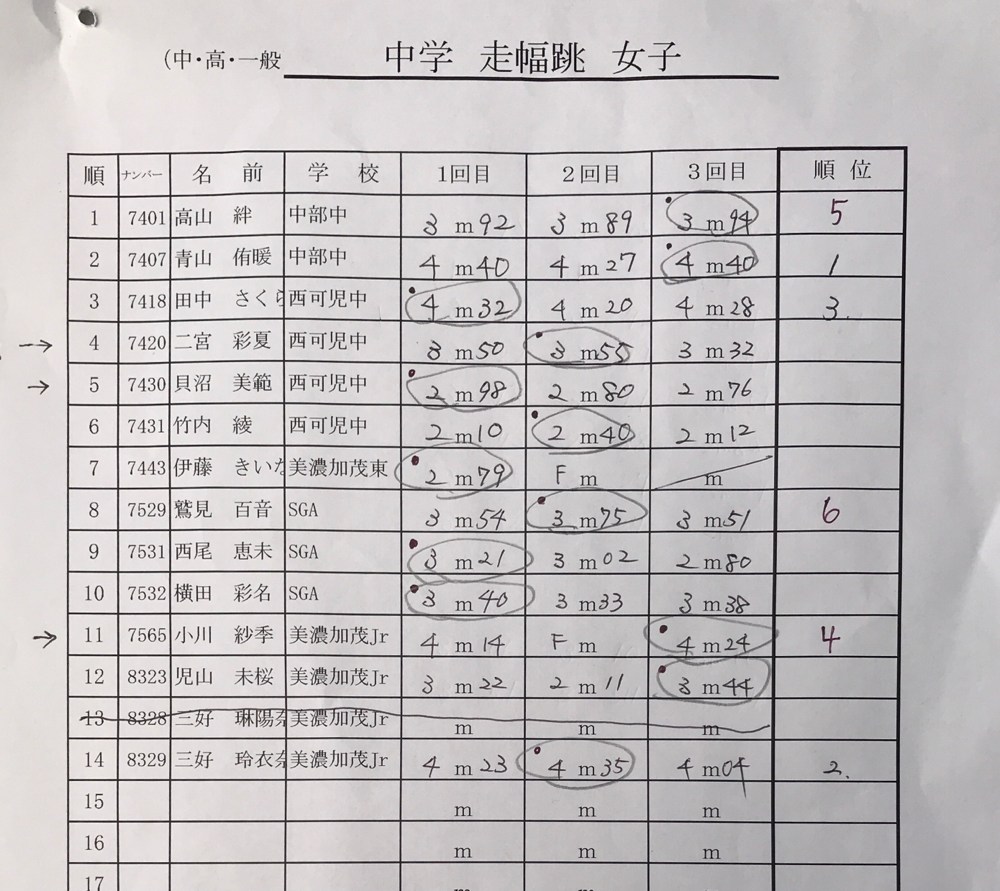 (中・高・一般 中学 走幅跳 女子
順 ナンバー 名 前 学 校 1回目 2回目 3回目 順 位
1 7401 高山 絆 中部中 3 m 92 3 m 89 3 m 94 5
2 7407 青山 侑暖 中部中 4 m 40 4 m 27 4 m 40 1
3 7418 田中 さくら 西可児中 4 m 32 4 m 20 4 m 28 3.
4 7420 二宮 彩夏 西可児中 3 m 50 3 m 55 3 m 32
5 7430 貝沼 美範 西可児中 2 m 98 2 m 80 2 m 76
6 7431 竹内 綾 西可児中 2 m 10 2 m 40 2 m 12
7 7443 伊藤 きいな 美濃加茂東 2 m 79 F m m
8 7529 鷲見 百音 SGA 3 m 54 3 m 75 3 m 51 6
9 7531 西尾 恵未 SGA 3 m 21 3 m 02 2 m 80
10 7532 横田 彩名 SGA 3 m 40 3 m 33 3 m 38
11 7565 小川 紗季 美濃加茂Jr 4 m 14 F m 4 m 24 4
12 8323 児山 未桜 美濃加茂Jr 3 m 22 2 m 11 3 m 44
13 8328 三好 琳陽奈 美濃加茂Jr m m m
14 8329 三好 玲衣奈 美濃加茂Jr 4 m 23 4 m 35 4 m 04 2.
15 m m m
16 m m m
17 m